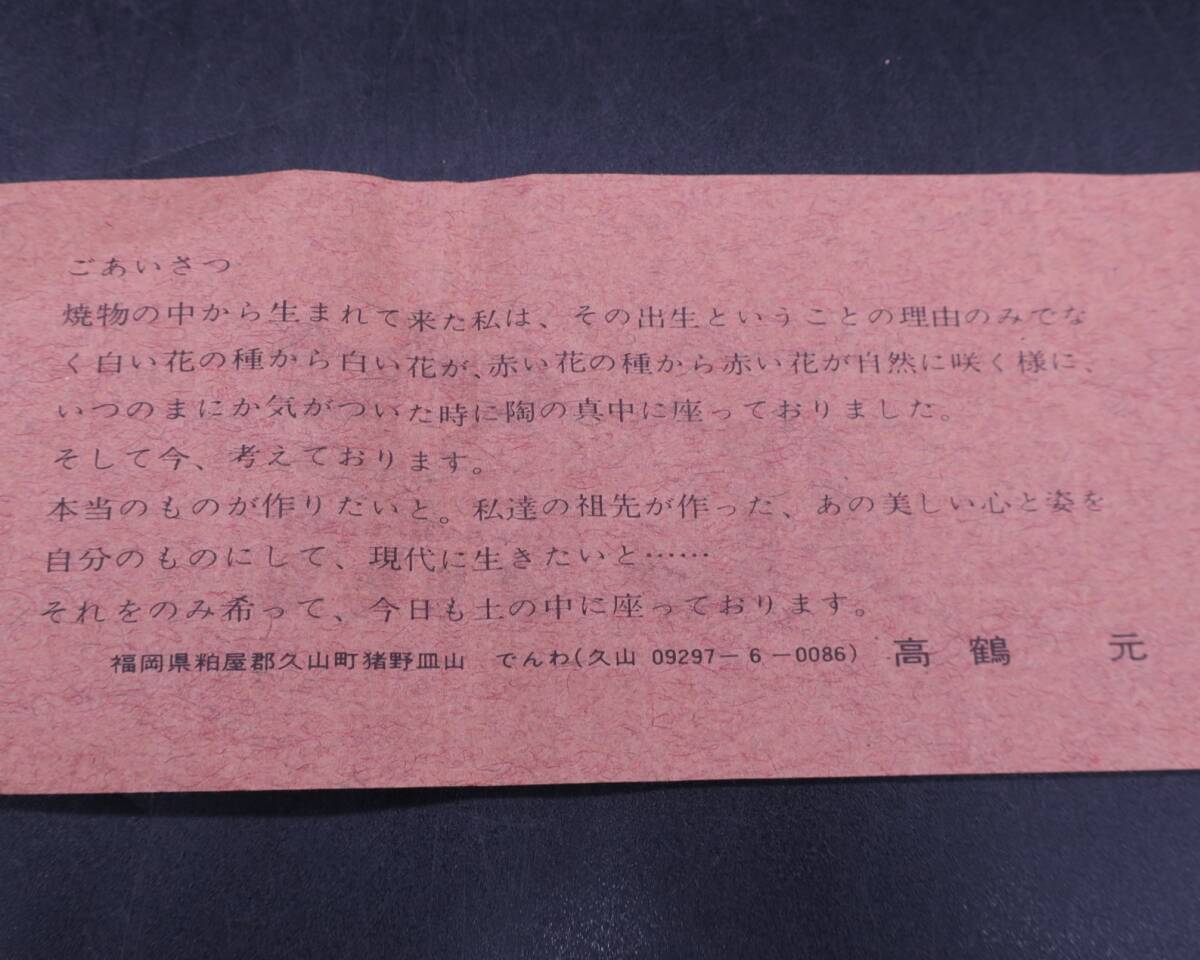 ごあいさつ
焼物の中から生まれて来た私は、その出生ということの理由のみでな
く白い花の種から白い花が、赤い花の種から赤い花が自然に咲く様に、
いつのまにか気がついた時に陶の真中に座っておりました。
そして今、考えております。
本当のものが作りたいと。私達の祖先が作った、あの美しい心と姿を
自分のものにして、現代に生きたいと……
それをのみ希って、今日も土の中に座っております。
福岡県粕屋郡久山町猪野皿山　でんわ(久山 09297－6－0086)　高鶴　元